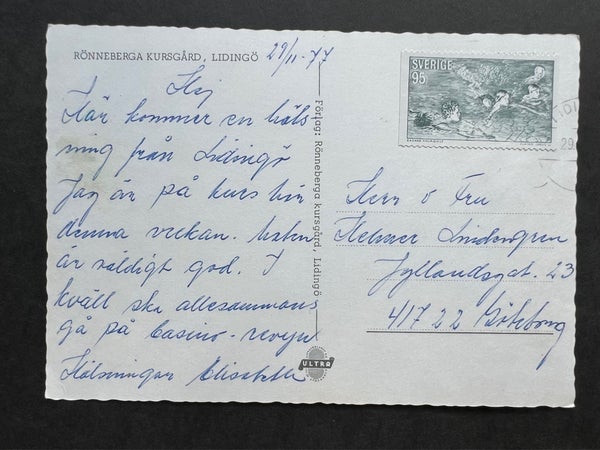 RÖNNEBERGA KURSGÅRD, LIDINGÖ
29/11-77
Hej
Här kommer en häls-
ning från Lidingö
Jag är på kurs här
denna veckan. Maten
är väldigt god. I
kväll ska allesammans
gå på Casino-revyn
Hälsningar Elisabeth
Förlag: Rönneberga kursgård, Lidingö
ULTRA
SVERIGE
95
Herr o Fru
Helmer Lindengren
Jyllandsgat. 23
417 22 Göteborg
29.